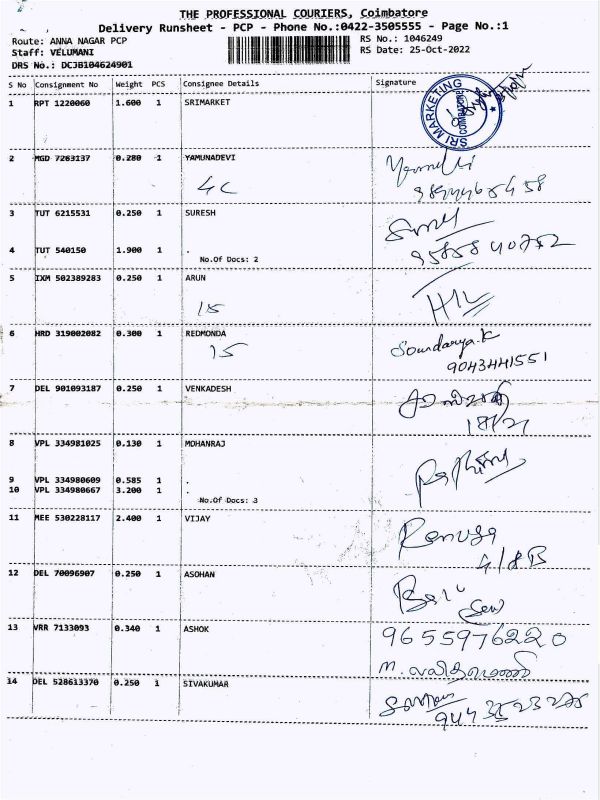 THE PROFESSIONAL COURIERS, Coimbatore
Delivery Runsheet - PCP - Phone No.:0422-3505555 - Page No.:1
Route: ANNA NAGAR PCP
RS No.: 1046249
Staff: VELUMANI
RS Date: 25-Oct-2022
DRS No.: DCJB104624901
S No Consignment No Weight PCS Consignee Details Signature
1 RPT 1220060 1.600 1 SRIMARKET
SRI MARKETING
COIMBATORE
2 MGD 7263137 0.280 1 YAMUNADEVI
4C
3 TUT 6215531 0.250 1 SURESH
4 TUT 540150 1.900 1 .
No.Of Docs: 2
5 IXM 502389283 0.250 1 ARUN
15
6 HRD 319002082 0.300 1 REDMONDA
15
Soundarya.k
9043441551
7 DEL 901093187 0.250 1 VENKADESH
8 VPL 334981025 0.130 1 MOHANRAJ
9 VPL 334980609 0.585 1 .
10 VPL 334980667 3.200 1 .
No.Of Docs: 3
11 MEE 530228117 2.400 1 VIJAY
Renuga
4/8B
12 DEL 70096907 0.250 1 ASOHAN
13 VRR 7133093 0.340 1 ASHOK
9655976220
14 DEL 528613370 0.250 1 SIVAKUMAR